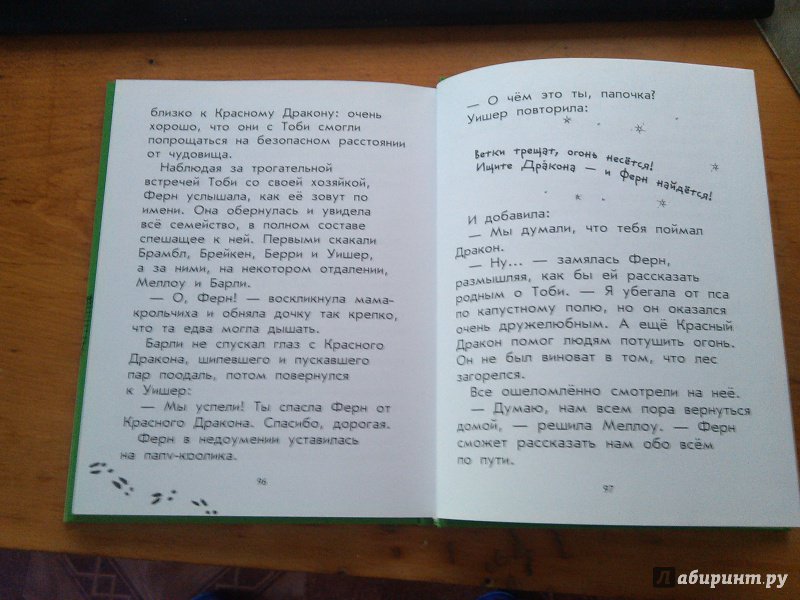 близко к Красному Дракону: очень
хорошо, что они с Тоби смогли
попрощаться на безопасном расстоянии
от чудовища.
Наблюдая за трогательной
встречей Тоби со своей хозяйкой,
Ферн услышала, как её зовут по
имени. Она обернулась и увидела
всё семейство, в полном составе
спешащее к ней. Первыми скакали
Брамбл, Брейкен, Берри и Уишер,
а за ними, на некотором отдалении,
Меллоу и Барли.
— О, Ферн! — воскликнула мама-
крольчиха и обняла дочку так крепко,
что та едва могла дышать.
Барли не спускал глаз с Красного
Дракона, шипевшего и пускавшего
пар поодаль, потом повернулся
к Уишер:
— Мы успели! Ты спасла Ферн от
Красного Дракона. Спасибо, дорогая.
Ферн в недоумении уставилась
на папу-кролика.
96
— О чём это ты, папочка?
Уишер повторила:
Ветки трещат, огонь несётся!
Ищите Дракона — и Ферн найдётся!
И добавила:
— Мы думали, что тебя поймал
Дракон.
— Ну... — замялась Ферн,
размышляя, как бы ей рассказать
родным о Тоби. — Я убегала от пса
по капустному полю, но он оказался
очень дружелюбным. А ещё Красный
Дракон помог людям потушить огонь.
Он не был виноват в том, что лес
загорелся.
Все ошеломлённо смотрели на неё.
— Думаю, нам всем пора вернуться
домой, — решила Меллоу. — Ферн
сможет рассказать нам обо всём
по пути.
97
Лабиринт.ру